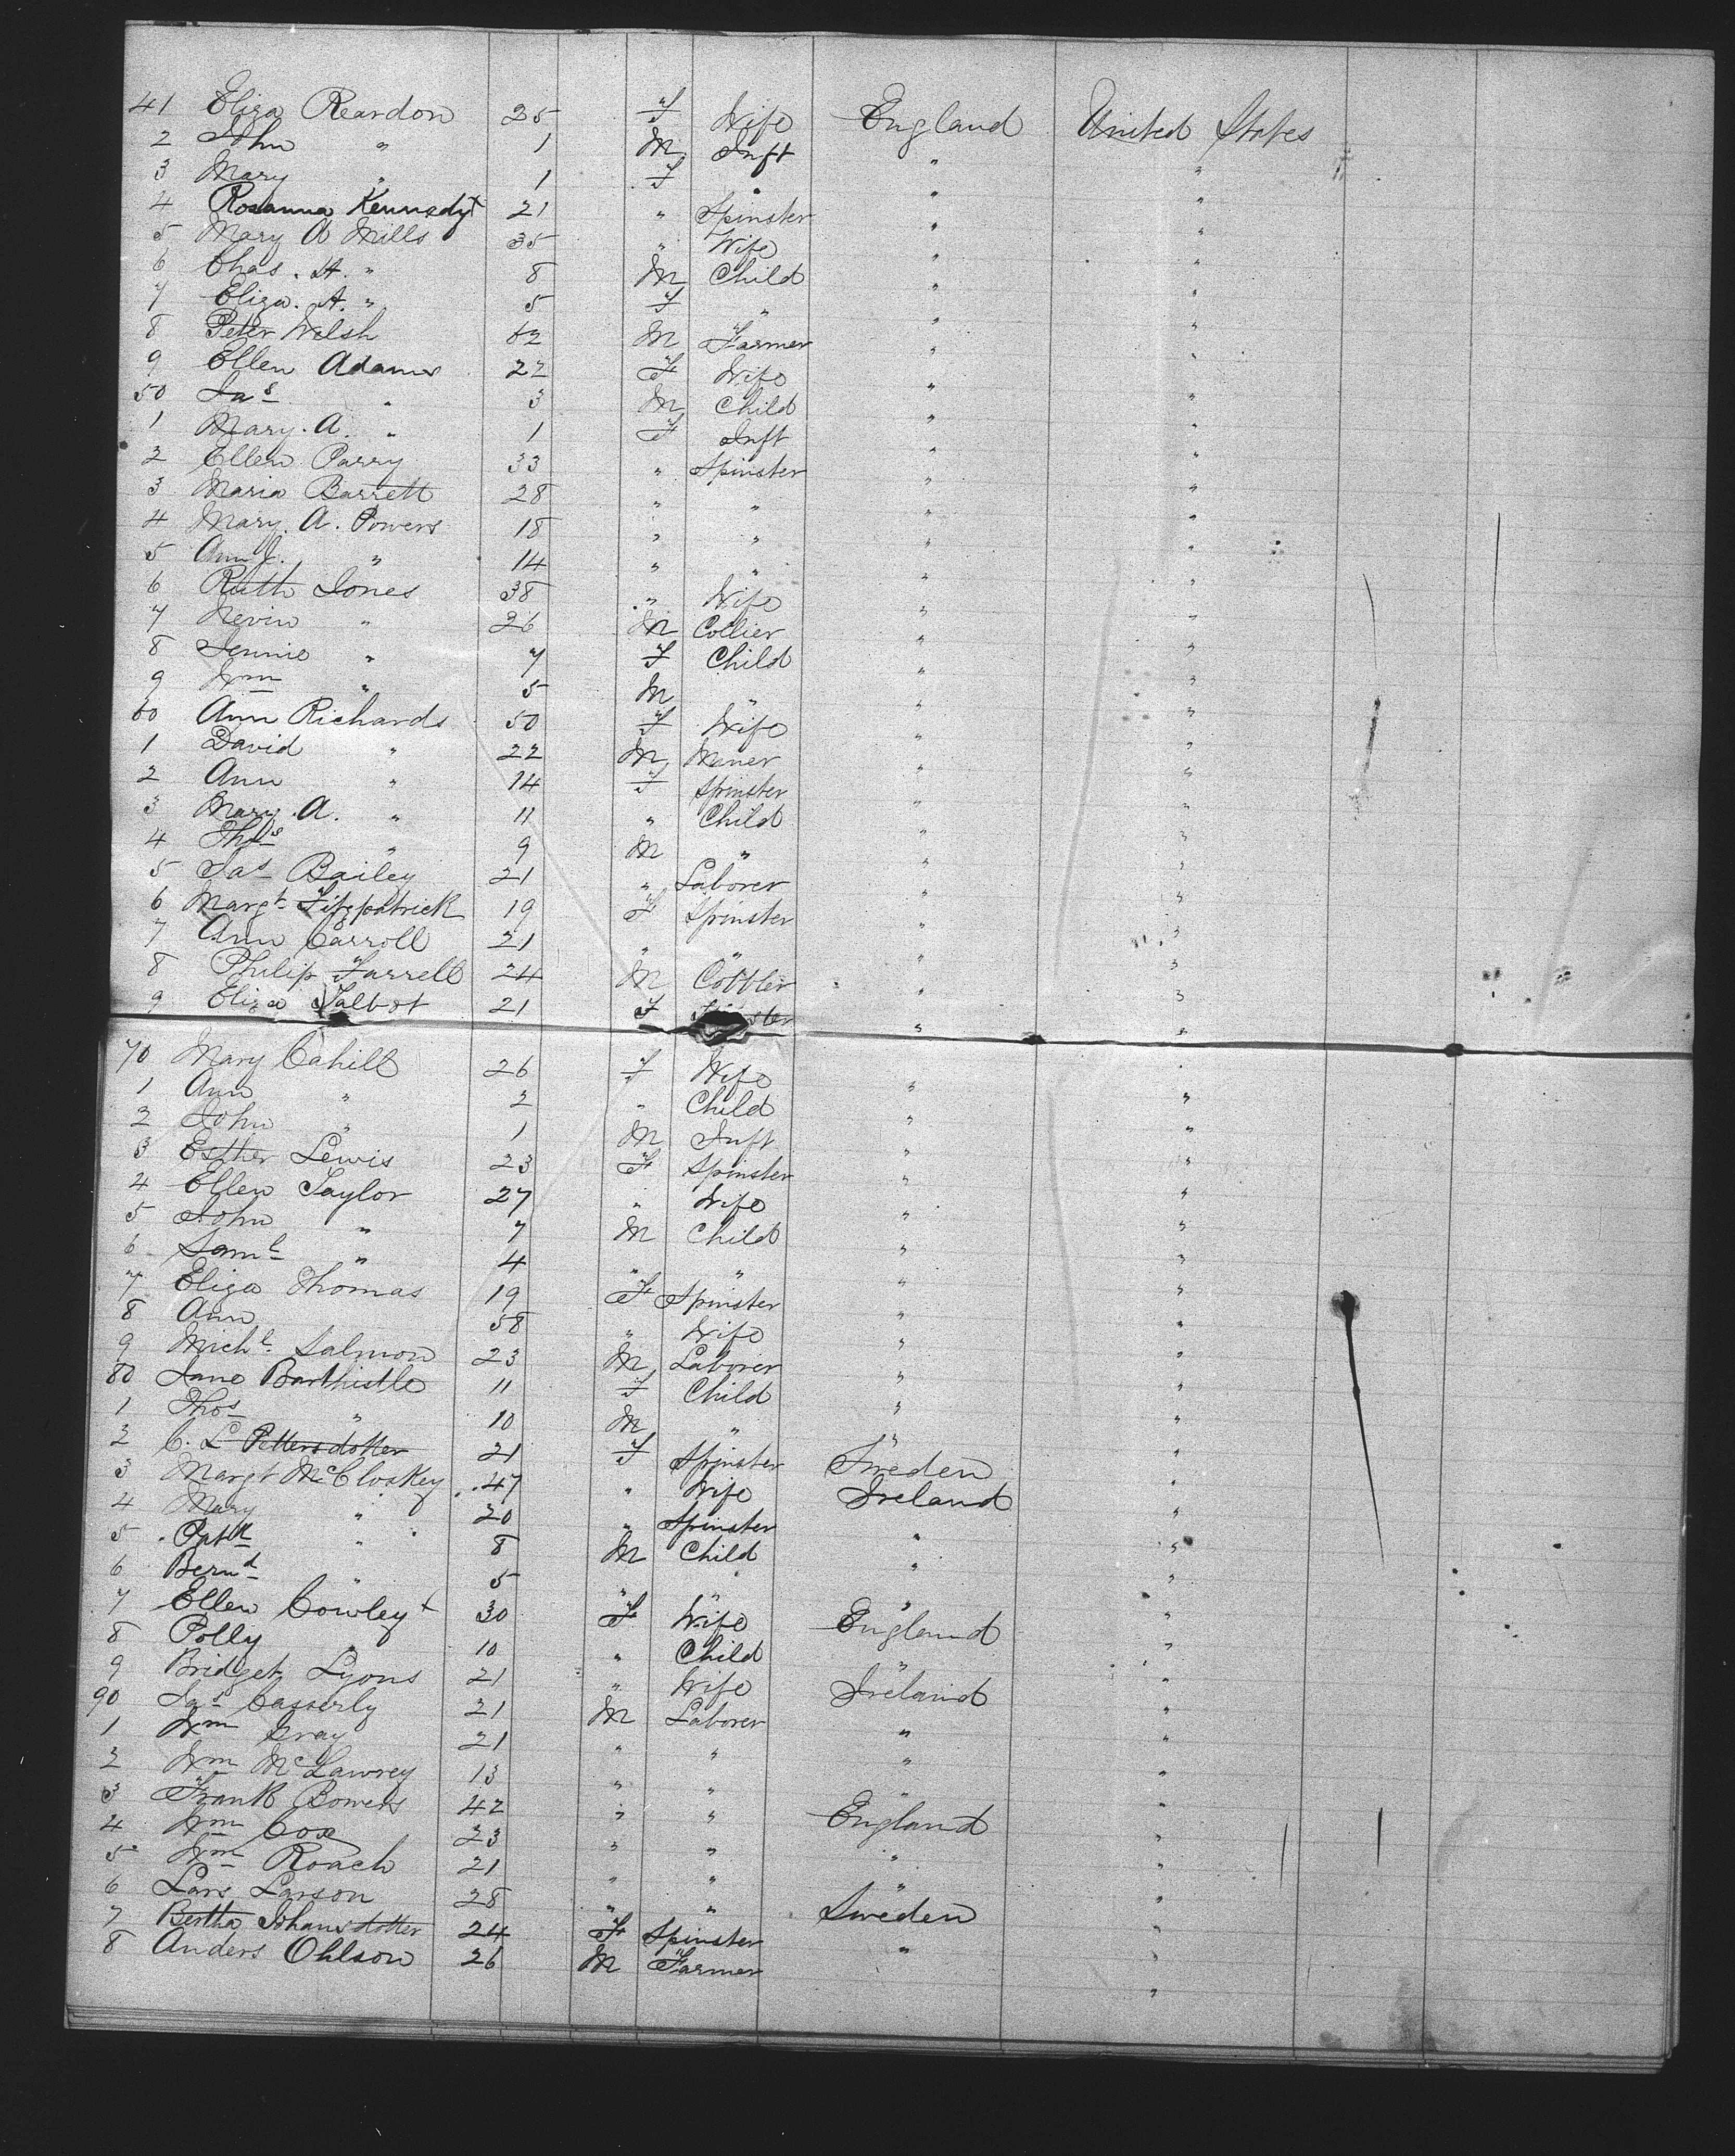 41 Eliza Reardon 25 F Wife England United States
2 John " 1 M Inft " "
3 Mary " 1 F " " "
4 Rosanna Kennedy+ 21 " Spinster " "
5 Mary A Mills 35 " Wife " "
6 Chas. H. " 8 M Child " "
7 Eliza. A. " 5 F " " "
8 Peter Welsh 62 M Farmer " "
9 Ellen Adams 22 F Wife " "
50 Jas " 3 M Child " "
1 Mary. A. " 1 F Inft " "
2 Ellen Parry 33 " Spinster " "
3 Maria Barrett 28 " " " "
4 Mary. A. Powers 18 " " " "
5 Ann J. " 14 " " " "
6 Ruth Jones 38 " Wife " "
7 Nevin " 26 M Collier " "
8 Jennie " 7 F Child " "
9 Wm " 5 M " " "
60 Ann Richards 50 F Wife " "
1 David " 22 M Maner " "
2 Ann " 14 F Spinster " "
3 Mary. A. " 11 " Child " "
4 Thos " 9 M " " "
5 Jas Bailey 21 " Laborer " "
6 Margt Fitzpatrick 19 F Spinster " "
7 Ann Carroll 21 " " " "
8 Philip Farrell 24 M Cobbler " "
9 Eliza Talbot 21 F Spinster " "
70 Mary Cahill 26 F Wife " "
1 Ann " 2 " Child " "
2 John " 1 M Inft " "
3 Esther Lewis 23 F Spinster " "
4 Ellen Taylor 27 " Wife " "
5 John " 7 M Child " "
6 Saml " 4 " " " "
7 Eliza Thomas 19 F Spinster " "
8 Ann 58 " Wife " "
9 Michl Salmon 23 M Laborer " "
80 Jane Barthistle 11 F Child " "
1 Thos " 10 M " " "
2 C. L Pettersdotter 21 F Spinster Sweden "
3 Margt McCloskey 47 " Wife Ireland "
4 Mary " 20 " Spinster " "
5 Patk " 8 M Child " "
6 Bernd " 5 " " " "
7 Ellen Cowley+ 30 F Wife England "
8 Polly " 10 " Child " "
9 Bridget Lyons 21 " Wife Ireland "
90 Jas Casserly 21 M Laborer " "
1 Wm Gray 21 " " " "
2 Wm McLawrey 13 " " " "
3 Frank Bowers 42 " " England "
4 Wm Cox 23 " " " "
5 Wm Roach 21 " " " "
6 Lars Larson 28 " " Sweden "
7 Bertha Johansdotter 24 F Spinster " "
8 Anders Ohlson 26 M Farmer "